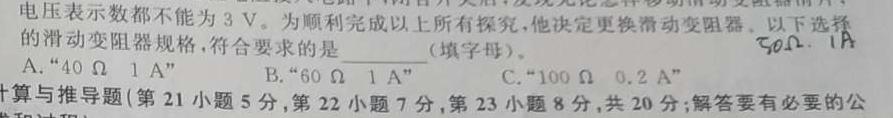 电压表示数都不能为 3 V。为顺利完成以上所有探究,他决定更换滑动变阻器。以下选择
的滑动变阻器规格,符合要求的是______(填字母)。
50Ω. 1A
A.“40 Ω 1 A” B.“60 Ω 1 A” C.“100 Ω 0.2 A”
计算与推导题(第 21 小题 5 分,第 22 小题 7 分,第 23 小题 8 分,共 20 分;解答要有必要的公